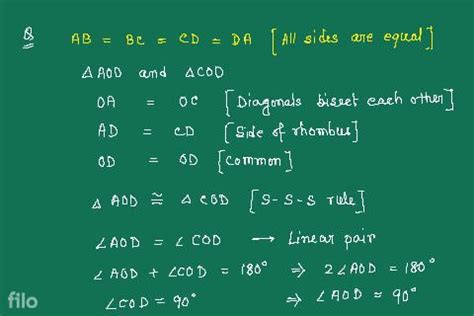 Q AB = BC = CD = DA [All sides are equal]
△AOD and △COD
OA = OC [Diagonals biset each other]
AD = CD [Side of rhombus]
OD = OD [Common]
△ AOD ≅ △ COD [S-S-S rule]
∠AOD = ∠COD → Linear pair
∠AOD + ∠COD = 180° ⇒ 2∠AOD = 180°
∠COD = 90° ⇒ ∠AOD = 90°
filo